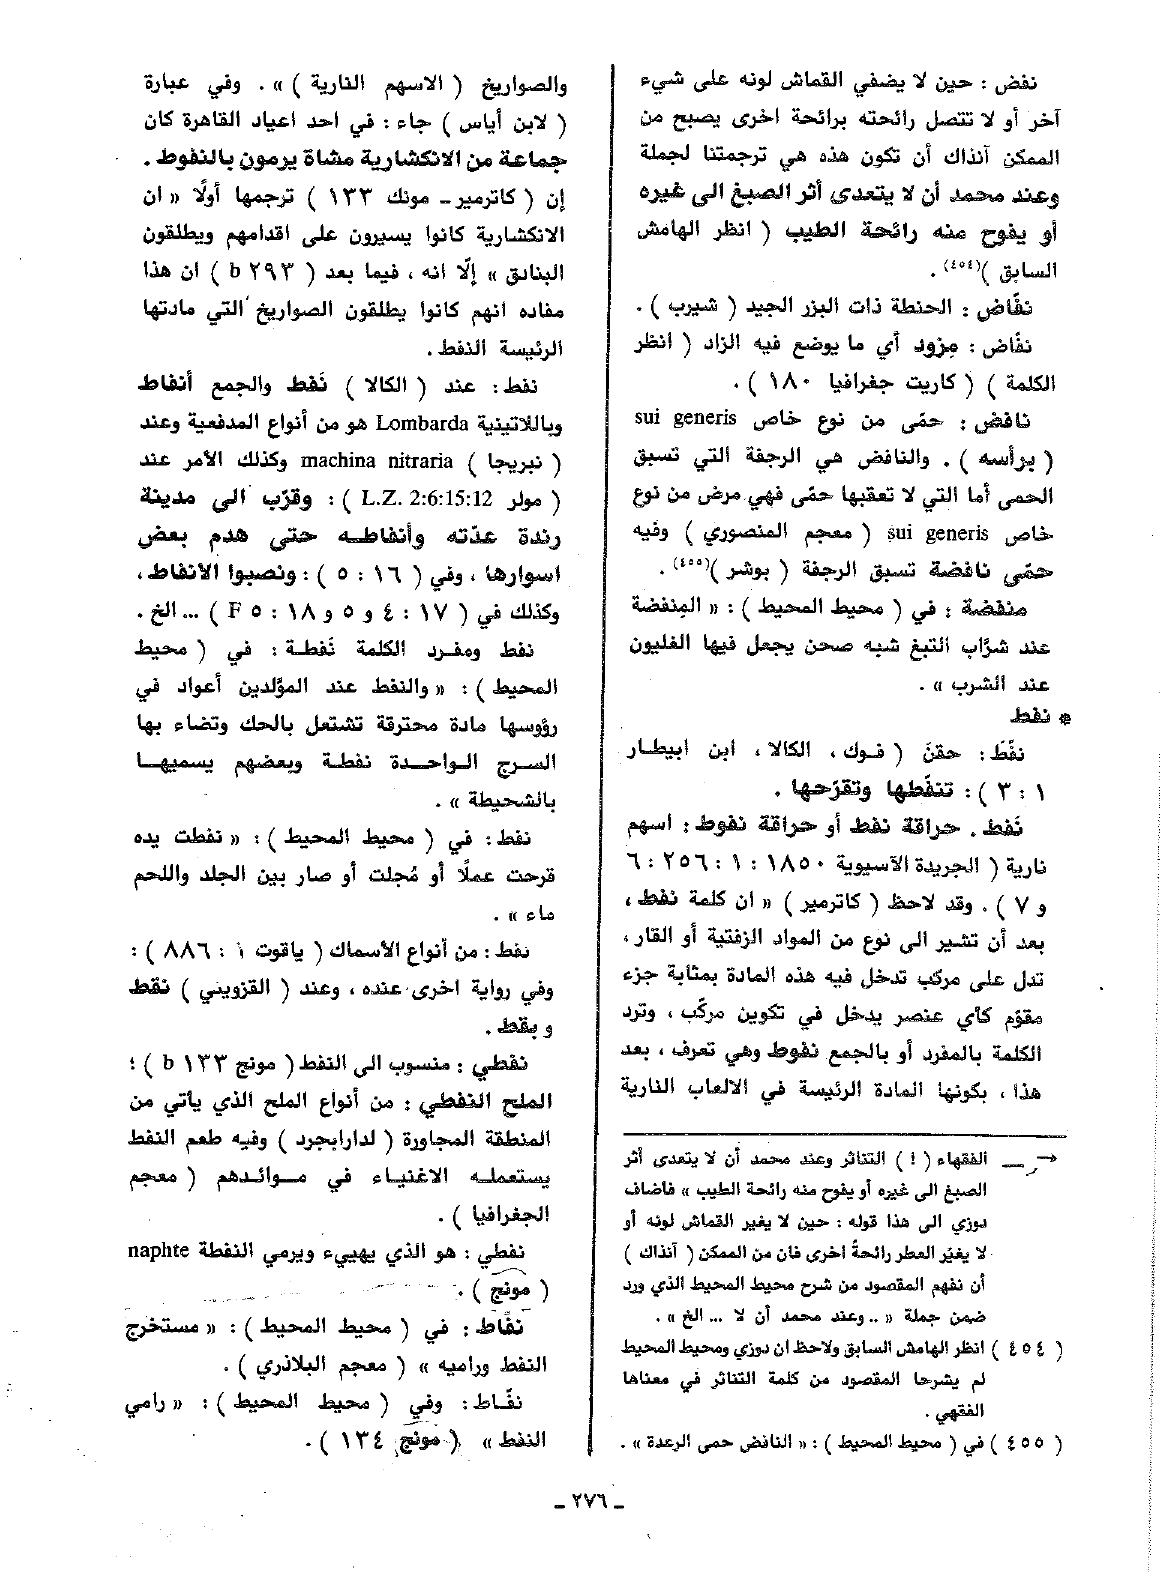 نفض : حين لا يضفي القماش لونه على شيء
آخر أو لا تتصل رائحته برائحة اخرى يصبح من
الممكن آنذاك أن تكون هذه هي ترجمتنا لجملة
وعند محمد أن لا يتعدى أثر الصبغ الى غيره
أو يفوح منه رائحة الطيب ( انظر الهامش
السابق )(٤٥٤) .
نفّاض : الحنطة ذات البزر الجيد ( شيرب ) .
نفّاض : مِزود أي ما يوضع فيه الزاد ( انظر
الكلمة ) ( كاريت جغرافيا ١٨٠ ) .
نافض : حمّى من نوع خاص sui generis
( برأسه ) . والنافض هي الرجفة التي تسبق
الحمى أما التي لا تعقبها حمّى فهي مرض من نوع
خاص sui generis ( معجم المنصوري ) وفيه
حمّى نافضة تسبق الرجفة ( بوشر )(٤٥٥) .
منفضة : في ( محيط المحيط ) : « المِنفضة
عند شرَّاب التبغ شبه صحن يجعل فيها الغليون
عند الشرب » .
* نفط
نفَّط : حقنَ ( فوك ، الكالا ، ابن ابيطار
١ : ٣ ) : تنفَّطها وتقرّحها .
نَفط . حراقة نفط أو حراقة نفوط : اسهم
نارية ( الجريدة الآسيوية ١٨٥٠ : ١ : ٢٥٦ : ٦
و ٧ ) . وقد لاحظ ( كاترمير ) « ان كلمة نفط ،
بعد أن تشير الى نوع من المواد الزفتية أو القار ،
تدل على مركب تدخل فيه هذه المادة بمثابة جزء
مقوّم كأي عنصر يدخل في تكوين مركّب ، وترد
الكلمة بالمفرد أو بالجمع نفوط وهي تعرف ، بعد
هذا ، بكونها المادة الرئيسة في الالعاب النارية
→ ــ الفقهاء ( ! ) التناثر وعند محمد أن لا يتعدى أثر
الصبغ الى غيره أو يفوح منه رائحة الطيب » فاضاف
دوزي الى هذا قوله : حين لا يغير القماش لونه أو
لا يغيّر العطر رائحةً اخرى فان من الممكن ( آنذاك )
أن نفهم المقصود من شرح محيط المحيط الذي ورد
ضمن جملة « .. وعند محمد أن لا ... الخ » .
( ٤٥٤ ) انظر الهامش السابق ولاحظ ان دوزي ومحيط المحيط
لم يشرحا المقصود من كلمة التناثر في معناها
الفقهي .
( ٤٥٥ ) في ( محيط المحيط ) : « النافض حمى الرعدة » .
والصواريخ ( الاسهم النارية ) » . وفي عبارة
( لابن أياس ) جاء : في احد اعياد القاهرة كان
جماعة من الانكشارية مشاة يرمون بالنفوط .
إن ( كاترمير - مونك ١٣٣ ) ترجمها أولًا « ان
الانكشارية كانوا يسيرون على اقدامهم ويطلقون
البنادق » إلّا انه ، فيما بعد ( ٢٩٣ b ) ان هذا
مفاده انهم كانوا يطلقون الصواريخ التي مادتها
الرئيسة النفط .
نفط : عند ( الكالا ) نَفط والجمع أنفاط
وباللاتينية Lombarda هو من أنواع المدفعية وعند
( نبريجا ) machina nitraria وكذلك الأمر عند
( مولر L.Z. 2:6:15:12 ) : وقرّب الى مدينة
رندة عدّته وأنفاطه حتى هدم بعض
اسوارها ، وفي ( ١٦ : ٥ ) : ونصبوا الانفاط ،
وكذلك في ( ١٧ : ٤ و ٥ و ١٨ : ٥ F ) ... الخ .
نفط ومفرد الكلمة نَفطة : في ( محيط
المحيط ) : « والنفط عند المؤلدين أعواد في
رؤوسها مادة محترقة تشتعل بالحك وتضاء بها
السرج الواحدة نفطة وبعضهم يسميها
بالشحيطة » .
نفط : في ( محيط المحيط ) : « نفطت يده
قرحت عملًا أو مُجلت أو صار بين الجلد واللحم
ماء » .
نفط : من أنواع الأسماك ( ياقوت ١ : ٨٨٦ ) :
وفي رواية اخرى عنده ، وعند ( القزويني ) نقط
و بقط .
نفطي : منسوب الى النفط ( مونج ١٣٣ b ) ؛
الملح النفطي : من أنواع الملح الذي يأتي من
المنطقة المجاورة ( لدارابجرد ) وفيه طعم النفط
يستعمله الاغنياء في موائدهم ( معجم
الجغرافيا ) .
نفطي : هو الذي يهييء ويرمي النفطة naphte
( مونج ) .
نفّاط : في ( محيط المحيط ) : « مستخرج
النفط وراميه » ( معجم البلاذري ) .
نفّاط : وفي ( محيط المحيط ) : « رامي
النفط » ( مونج ١٣٤ ) .
ـ ٢٧٦ ـ